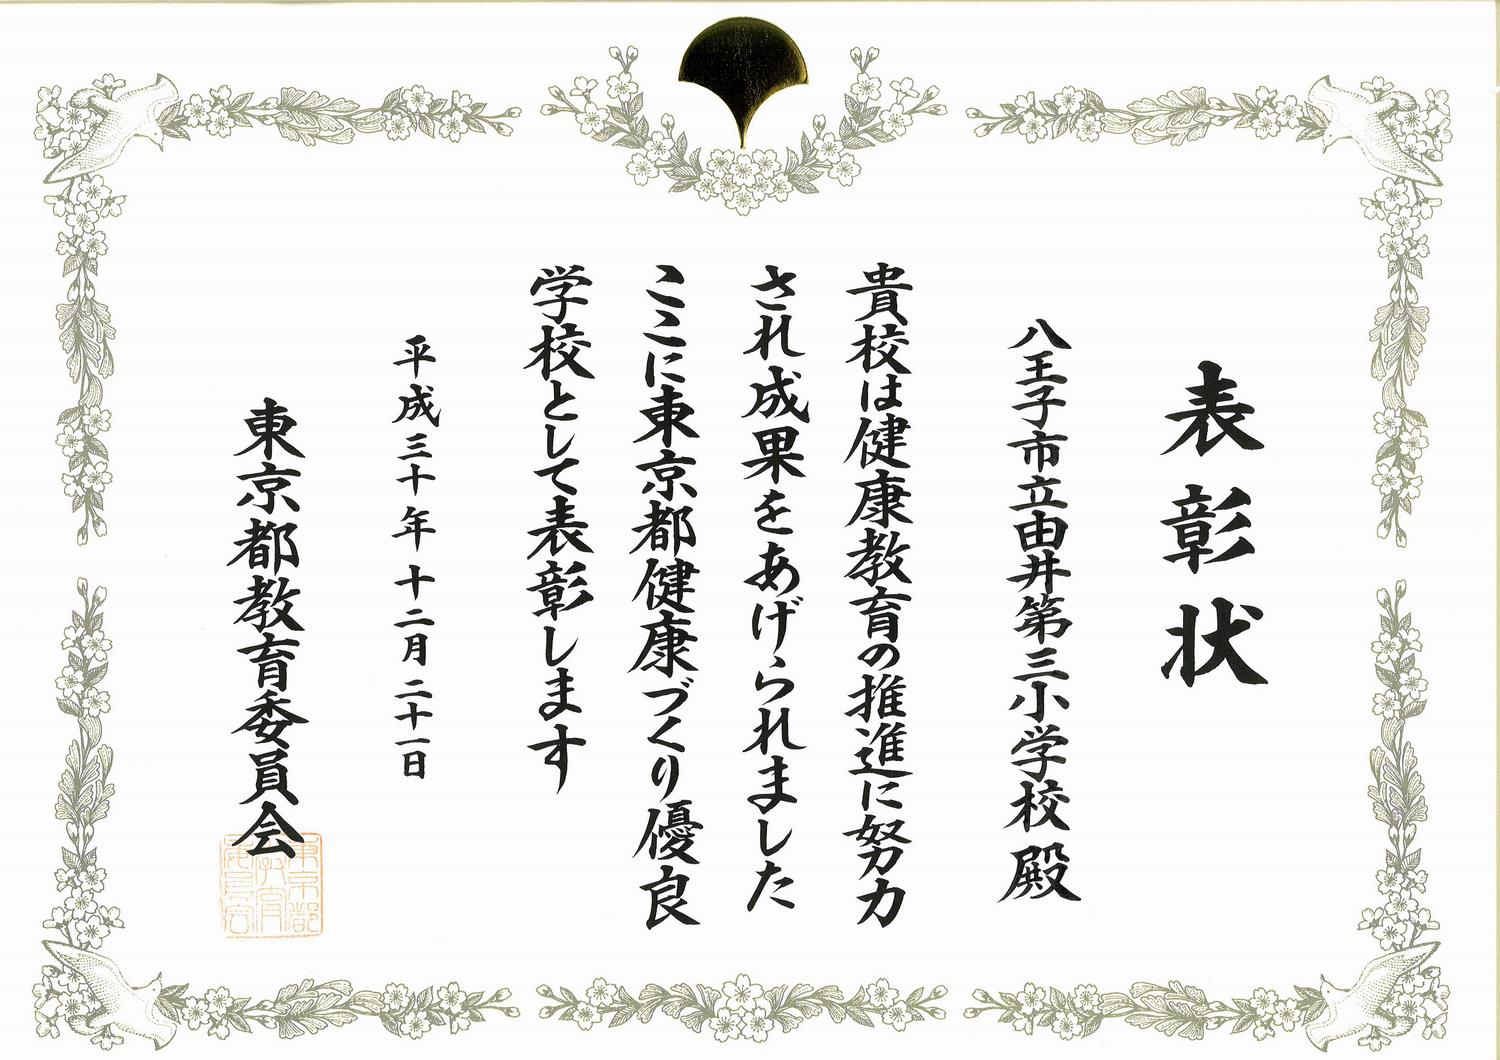 表彰状
八王子市立由井第三小学校殿
貴校は健康教育の推進に努力
され成果をあげられました
ここに東京都健康づくり優良
学校として表彰します
平成三十年十二月二十一日
東京都教育委員会